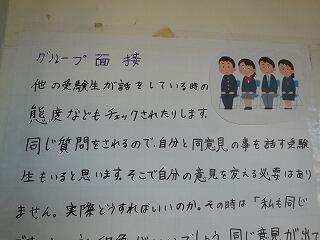 グループ面接
他の受験生が話をしている時の
態度などもチェックされたりします。
同じ質問をされるので、自分と同意見の事を話す受験
生もいると思います。そこで自分の意見を変える必要はあり
ません。実際どうすればいいのか。その時は「私も同じ
同じ意見が出て